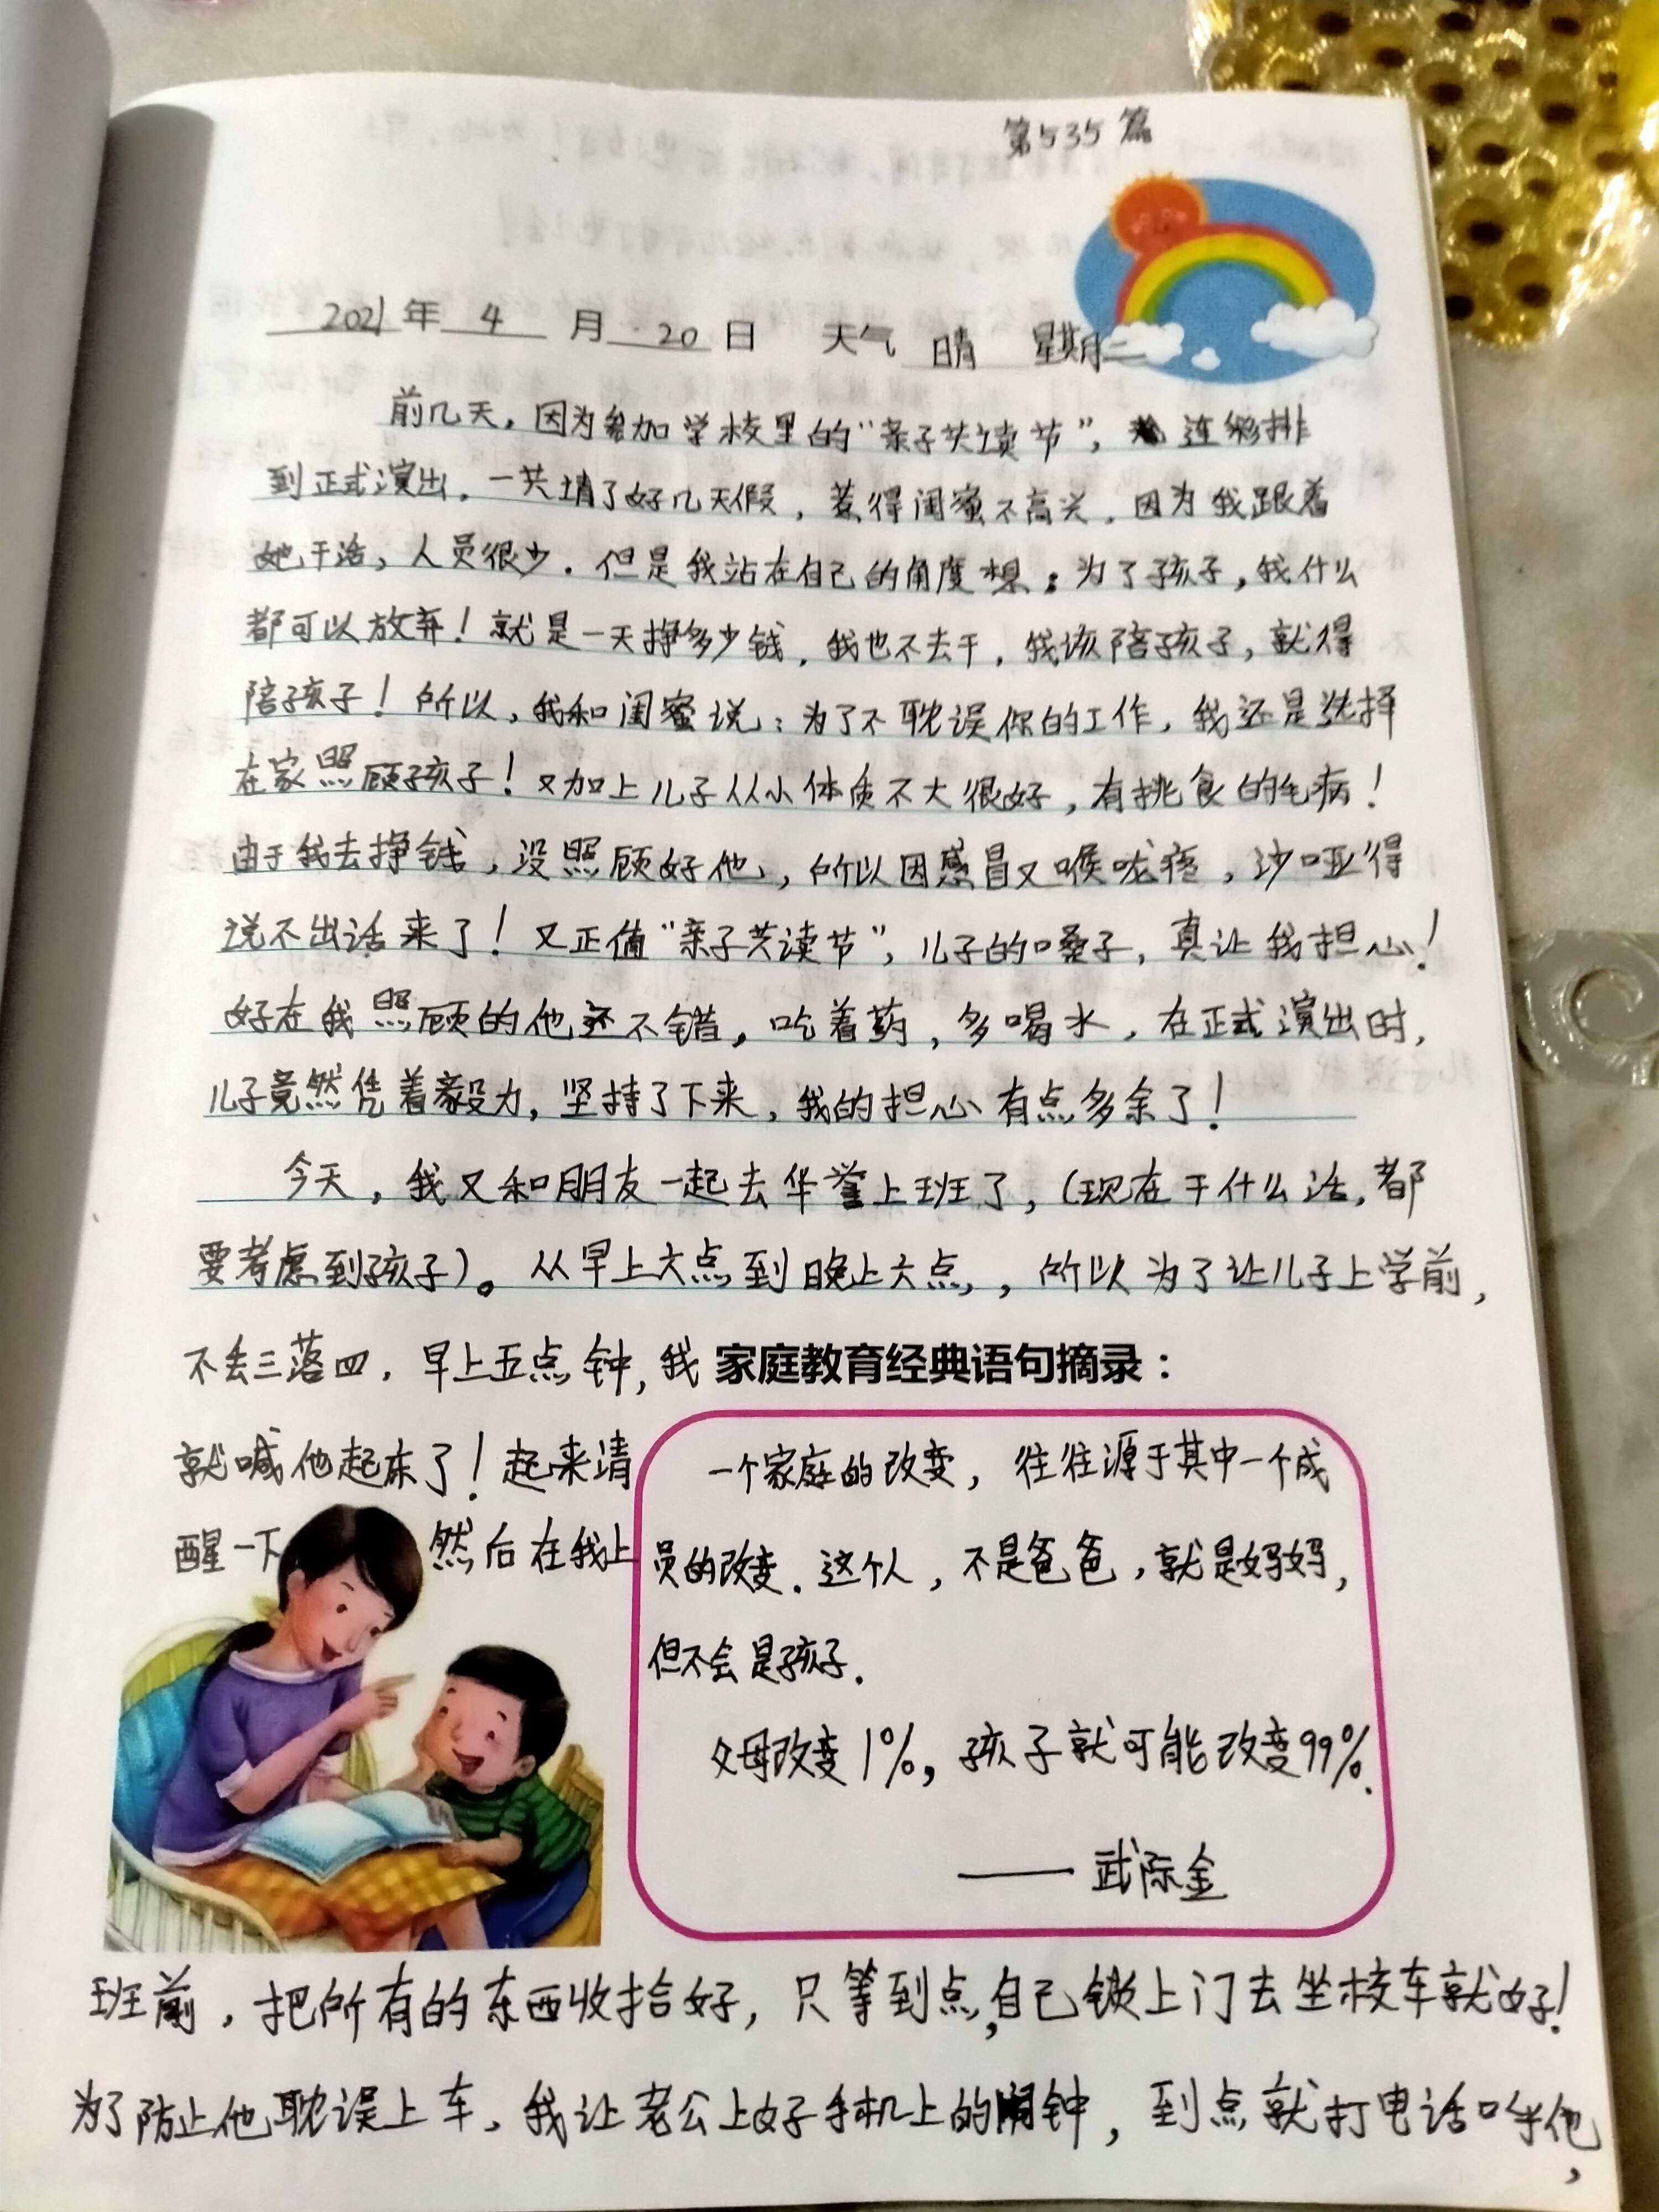 第535篇
2021年 4 月 20 日 天气 晴 星期二
前几天，因为参加学校里的“亲子共读节”，连彩排
到正式演出，一共请了好几天假，惹得闺蜜不高兴，因为我跟着
她干活，人员很少．但是我站在自己的角度想：为了孩子，我什么
都可以放弃！就是一天挣多少钱，我也不去干，我该陪孩子，就得
陪孩子！所以，我和闺蜜说：为了不耽误你的工作，我还是选择
在家照顾孩子！又加上儿子从小体质不大很好，有挑食的毛病！
由于我去挣钱，没照顾好他，所以因感冒又喉咙疼，沙哑得
说不出话来了！又正值“亲子共读节”，儿子的嗓子，真让我担心！
好在我照顾的他还不错，吃着药，多喝水，在正式演出时，
儿子竟然凭着毅力，坚持了下来，我的担心有点多余了！
今天，我又和朋友一起去华誉上班了，（现在干什么活，都
要考虑到孩子）。从早上六点到晚上六点，，所以为了让儿子上学前，
不丢三落四，早上五点钟，我
就喊他起床了！起来清
醒一下 然后在我上
家庭教育经典语句摘录：
一个家庭的改变，往往源于其中一个成
员的改变．这个人，不是爸爸，就是妈妈，
但不会是孩子．
父母改变1%，孩子就可能改变99%．
—— 武际金
班前，把所有的东西收拾好，只等到点，自己锁上门去坐校车就好！
为了防止他耽误上车，我让老公上好手机上的闹钟，到点就打电话叫他，